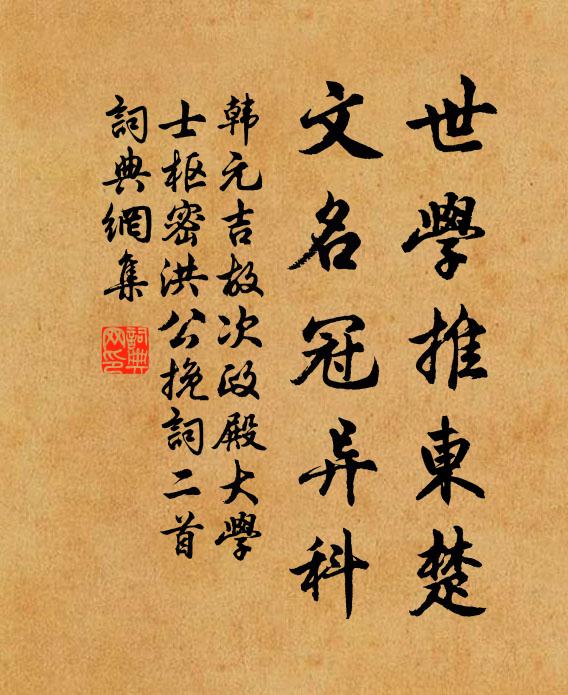 世學推東楚
文名冠异科
韩元吉故次政殿大學
士枢密洪公挽詞二首
詞典網集
詞典网印